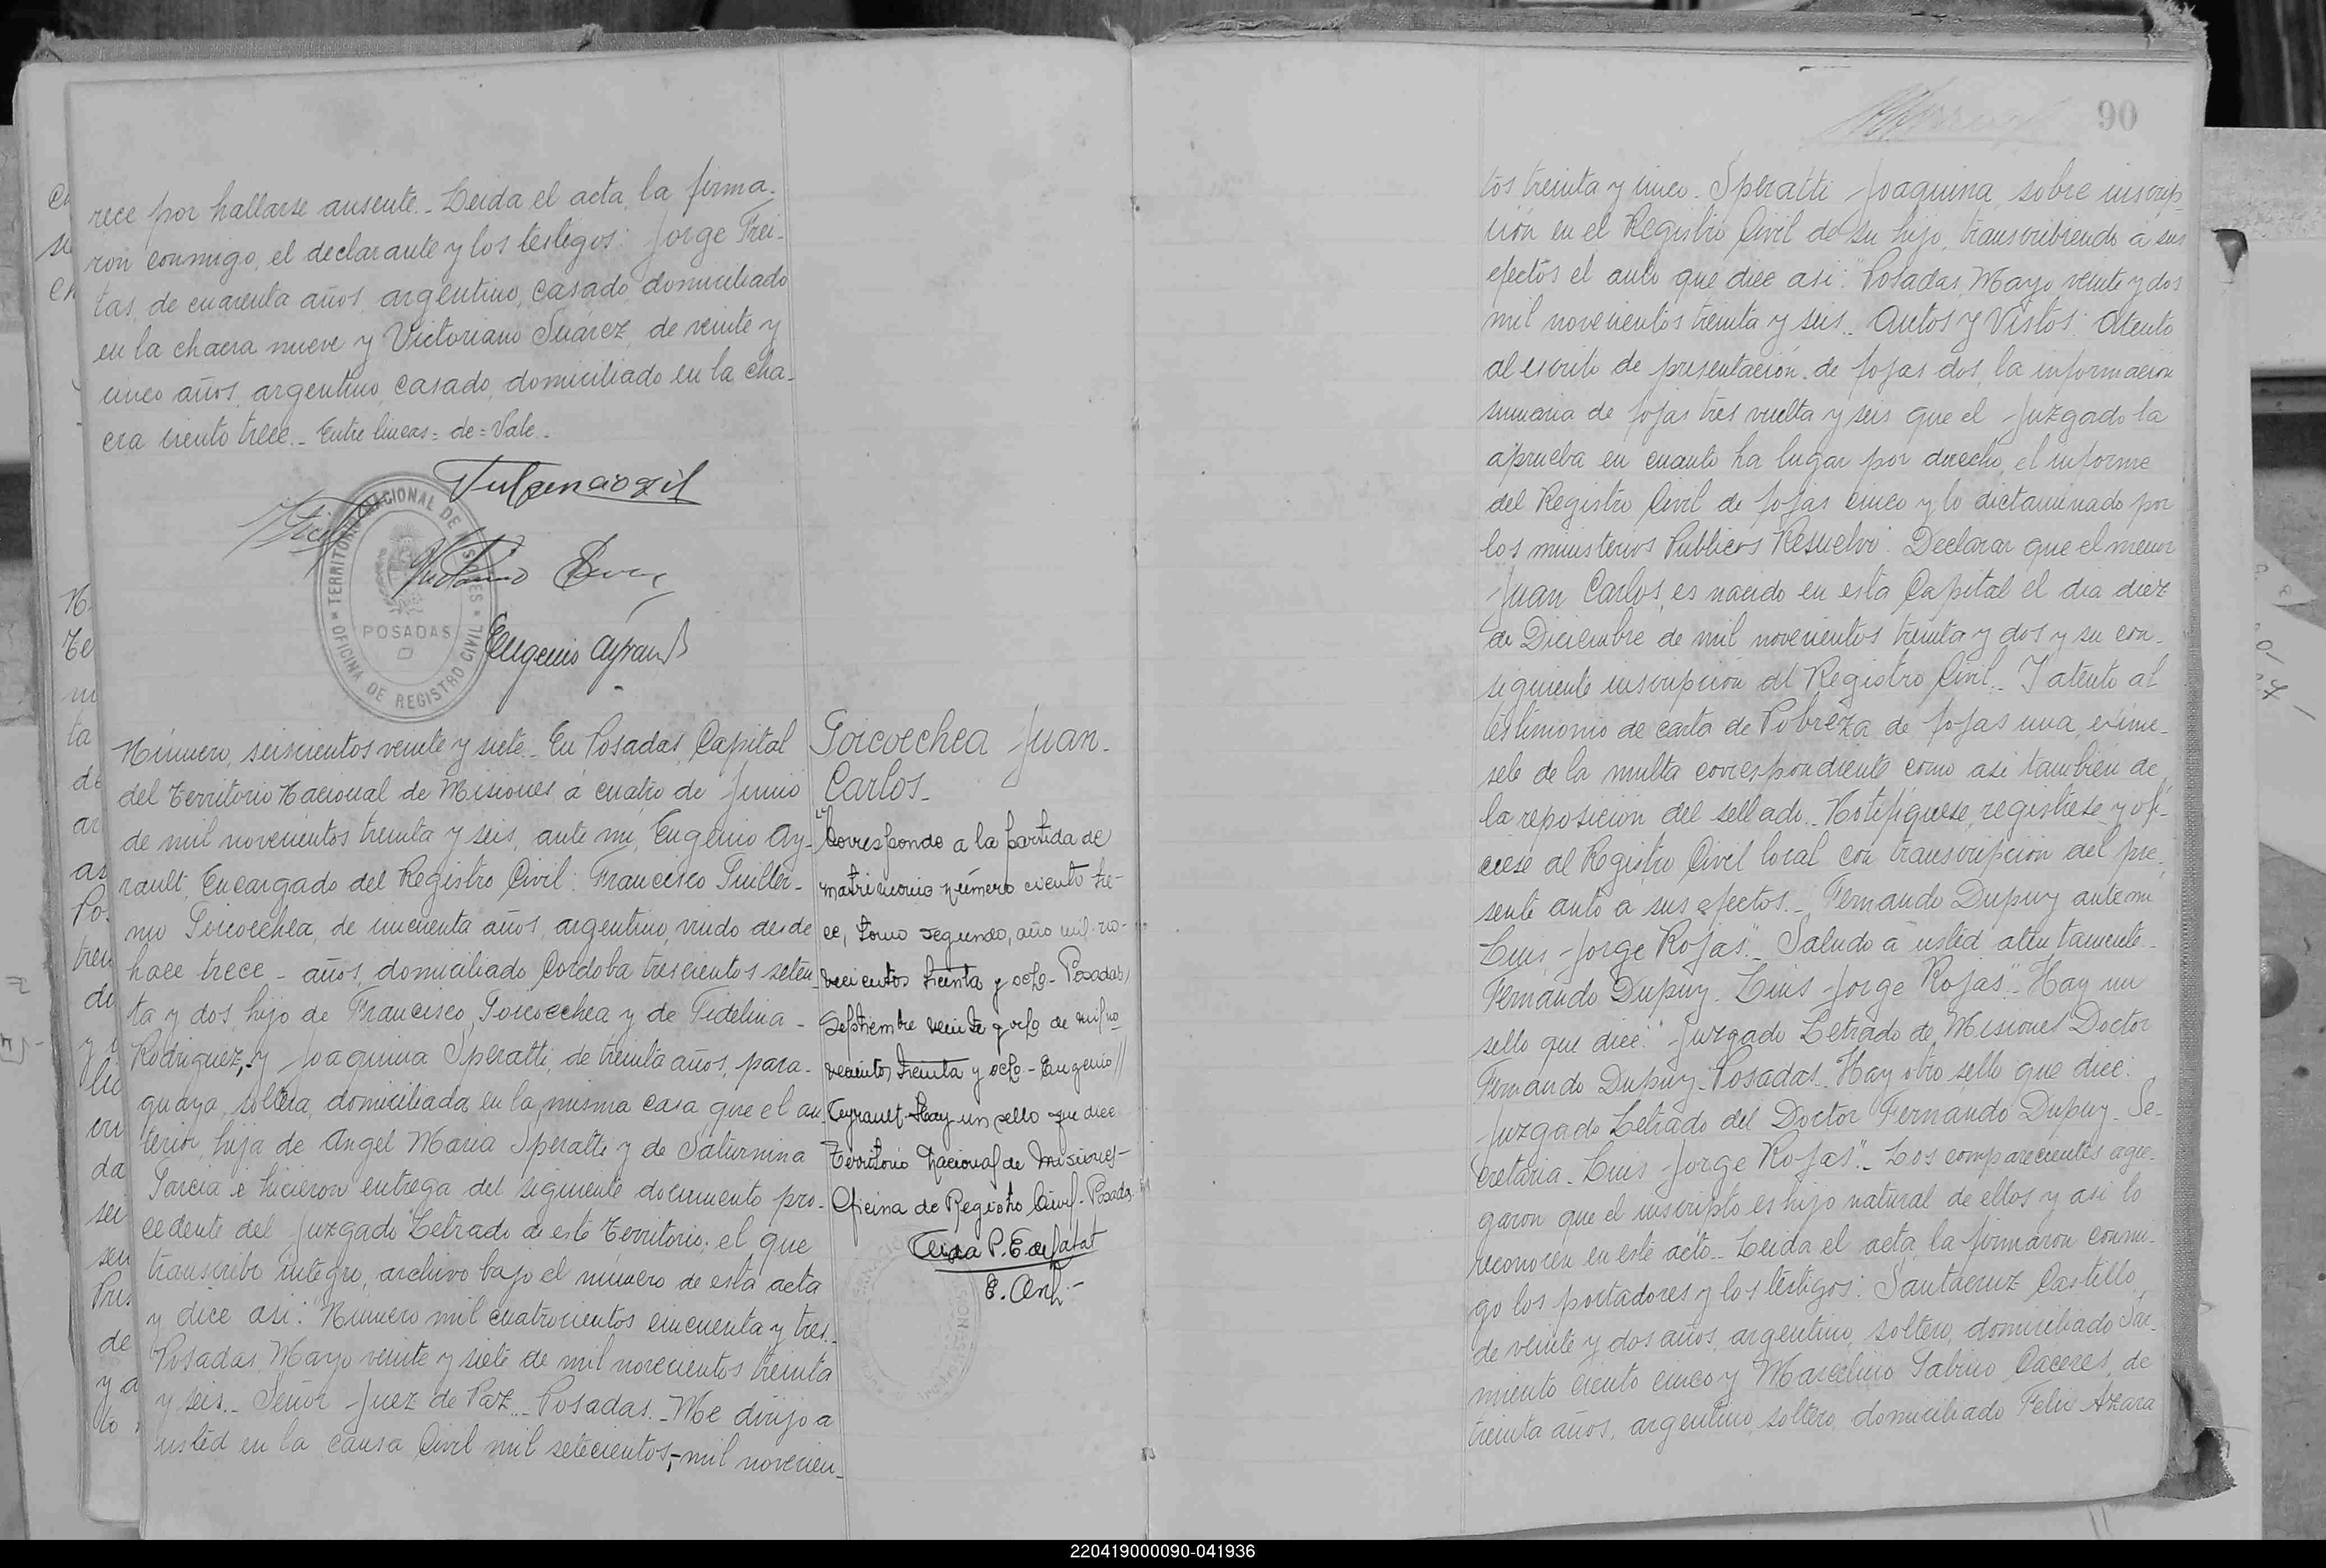 rece por hallarse ausente.- Leida el acta, la firma-
ron conmigo, el declarante y los testigos: Jorge Frei-
tas, de cuarenta años, argentino, casado, domiciliado
en la chacra nueve y Victoriano Suárez, de veinte y
cinco años, argentino, casado, domiciliado en la cha-
cra ciento trece.- Entre lineas = de = Vale.-
TERRITORIO NACIONAL DE MISIONES
POSADAS
OFICINA DE REGISTRO CIVIL
Eugenio Ayrault
Número, seiscientos veinte y siete.- En Posadas, Capital
del Territorio Nacional de Misiones, á cuatro de Junio
de mil novecientos treinta y seis, ante mi, Eugenio Ay-
rault, Encargado del Registro Civil: Francisco Guiller-
mo Goicoechea, de cincuenta años, argentino, viudo desde
hace trece - años, domiciliado Cordoba trescientos seten-
ta y dos, hijo de Francisco Goicoechea y de Fidelina -
Rodriguez,- y Joaquina Speratti, de treinta años, para-
guaya, soltera, domiciliada en la misma casa que el an-
terior, hija de Angel Maria Speratti y de Saturnina
Garcia é hicieron entrega del siguiente documento pro-
cedente del Juzgado Letrado de este Territorio, el que
transcribo integro, archivo bajo el número de esta acta
y dice asi: "Número mil cuatrocientos cincuenta y tres.-
Posadas, Mayo veinte y siete de mil novecientos treinta
y seis.- Señor Juez de Paz.- Posadas.- Me dirijo a
usted en la causa Civil mil setecientos,- mil novecien-
Goicoechea Juan-
Carlos.-
Corresponde a la partida de
matrimonio número ciento tre-
ce, tomo segundo, año mil no-
vecientos treinta y ocho - Posadas,
Septiembre veinte y ocho de mil no
vecientos treinta y ocho - Eugenio //
Ayrault - Hay un sello que dice
Territorio Nacional de Misiones -
Oficina de Registro Civil - Posadas
90
tos treinta y cinco. Speratti Joaquina, sobre inscrip-
ción en el Registro Civil de su hijo, transcribiendo a sus
efectos el auto que dice asi: "Posadas, Mayo veinte y dos
mil novecientos treinta y seis.- Autos y Vistos: Atento
al escrito de presentación de fojas dos, la información
sumaria de fojas tres vuelta y seis que el Juzgado la
aprueba en cuanto ha lugar por derecho, el informe
del Registro Civil de fojas cinco y lo dictaminado por
los ministerios Publicos Resuelvo: Declarar que el menor
Juan Carlos, es nacido en esta Capital el dia diez
de Diciembre de mil novecientos treinta y dos y su con-
siguiente inscripción al Registro Civil.- Y atento al
testimonio de carta de Pobreza de fojas una, exime-
sele de la multa correspondiente como asi también de
la reposición del sellado.- Notifiquese, registrese y ofi-
ciese al Registro Civil local con transcripción del pre-
sente auto a sus efectos.- Fernando Dupuy ante mi
Luis Jorge Rojas".- Saludo a usted atentamente-
Fernando Dupuy. Luis Jorge Rojas".- Hay un
sello que dice: "Juzgado Letrado de Misiones Doctor
Fernando Dupuy - Posadas. Hay otro sello que dice:
Juzgado Letrado del Doctor Fernando Dupuy. Se-
cretaria. Luis Jorge Rojas".- Los comparecientes agre-
garon que el inscripto es hijo natural de ellos y asi lo
reconocen en este acto.- Leida el acta, la firmaron conmi-
go los portadores y los testigos: Santacruz Castillo,
de veinte y dos años, argentino, soltero, domiciliado Sar-
miento ciento cinco y Marcelino Sabino Caceres, de
treinta años, argentino, soltero, domiciliado Felix Azara
220419000090-041936